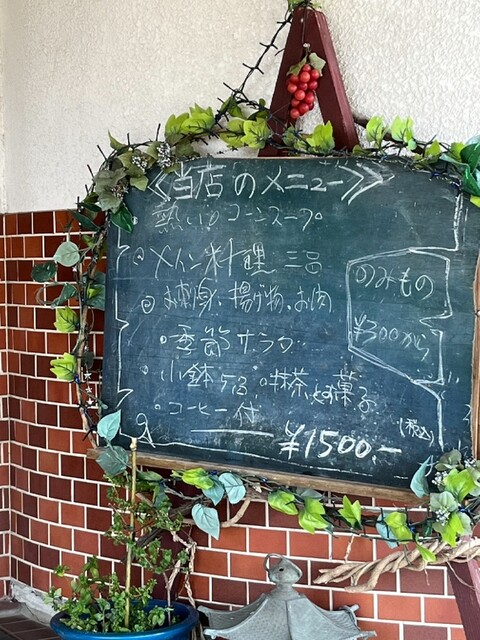 ≪当店のメニュー≫
熱いコーンスープ
◎メイン料理 三品
◎お刺身、揚げ物、お肉
・季節サラダ
・小鉢5品・抹茶とお菓子
・コーヒー付
¥1500.-
(税込)
のみもの
¥300から